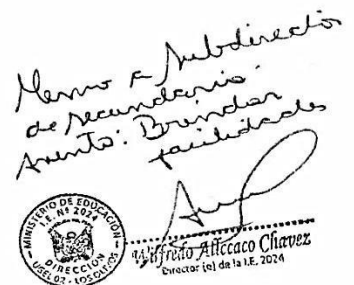 Memo a Subdirector
de secundaria
Asunto: Brindar
facilidades
MINISTERIO DE EDUCACIÓN
I.E. Nº 2024
DIRECCION
UGEL 02 - LOS OLIVOS
Wilfredo Allccaco Chavez
Director (e) de la I.E. 2024